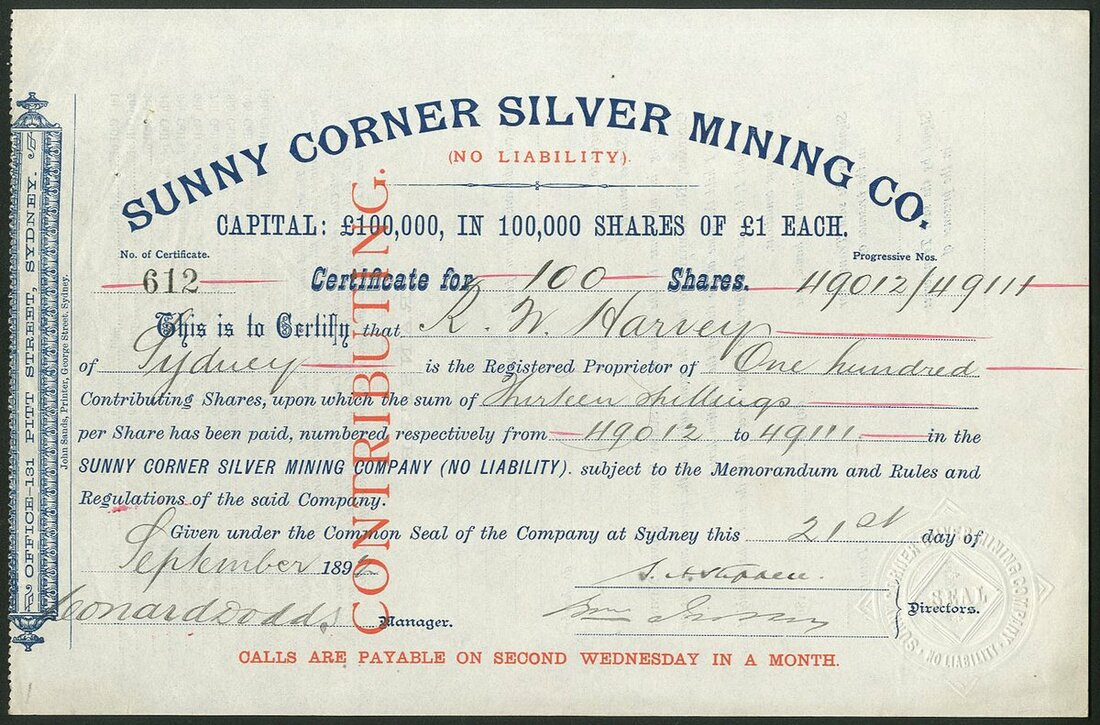 SUNNY CORNER SILVER MINING CO.
(NO LIABILITY).
CAPITAL: £100,000, IN 100,000 SHARES OF £1 EACH.
No. of Certificate. Progressive Nos.
612 Certificate for 100 Shares. 49012/49111
This is to Certify that R. W. Harvey
of Sydney is the Registered Proprietor of One hundred
Contributing Shares, upon which the sum of Thirteen shillings
per Share has been paid, numbered respectively from 49012 to 49111 in the
SUNNY CORNER SILVER MINING COMPANY (NO LIABILITY). subject to the Memorandum and Rules and
Regulations of the said Company.
Given under the Common Seal of the Company at Sydney this 21st day of
September 189
Leonard Dodds Manager. Directors.
CALLS ARE PAYABLE ON SECOND WEDNESDAY IN A MONTH.
CONTRIBUTING.
OFFICE-131 PITT STREET, SYDNEY.
John Sands, Printer, George Street, Sydney.
SUNNY CORNER SILVER MINING COMPANY
NO LIABILITY
SEAL